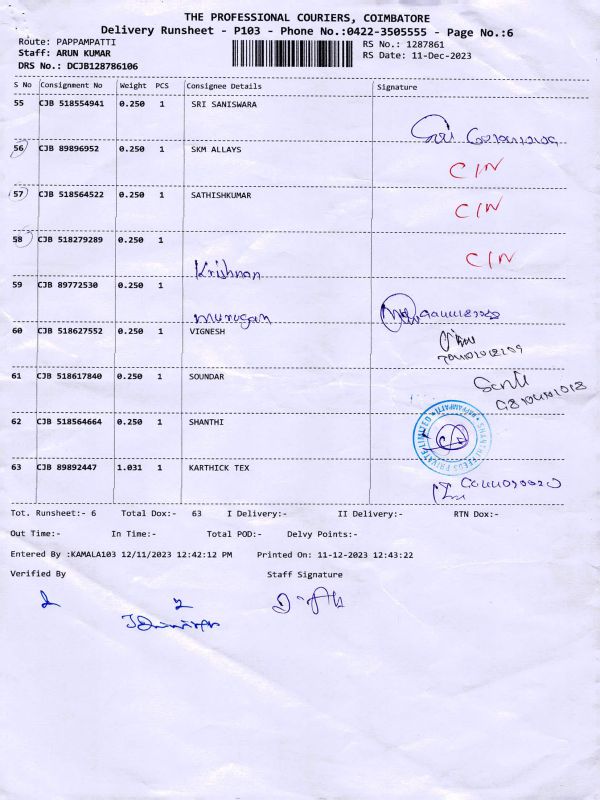 THE PROFESSIONAL COURIERS, COIMBATORE
Delivery Runsheet - P103 - Phone No.:0422-3505555 - Page No.:6
Route: PAPPAMPATTI RS No.: 1287861
Staff: ARUN KUMAR RS Date: 11-Dec-2023
DRS No.: DCJB128786106
S No Consignment No Weight PCS Consignee Details Signature
55 CJB 518554941 0.250 1 SRI SANISWARA
56 CJB 89896952 0.250 1 SKM ALLAYS C/N
57 CJB 518564522 0.250 1 SATHISHKUMAR C/N
58 CJB 518279289 0.250 1 Krishnan C/N
59 CJB 89772530 0.250 1 Murugan
60 CJB 518627552 0.250 1 VIGNESH
61 CJB 518617840 0.250 1 SOUNDAR
62 CJB 518564664 0.250 1 SHANTHI SHANTHI FEEDS PRIVATE LIMITED PAPPAMPATTI
63 CJB 89892447 1.031 1 KARTHICK TEX
Tot. Runsheet:- 6 Total Dox:- 63 I Delivery:- II Delivery:- RTN Dox:-
Out Time:- In Time:- Total POD:- Delvy Points:-
Entered By :KAMALA103 12/11/2023 12:42:12 PM Printed On: 11-12-2023 12:43:22
Verified By Staff Signature